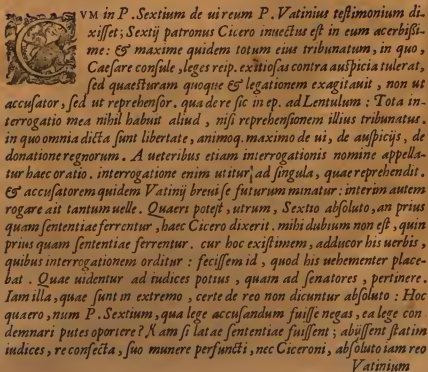 CVM in P. Sextium de ui reum P. Vatinius testimonium di-
xisset; Sextij patronus Cicero inuectus est in eum acerbissi-
me: & maxime quidem totum eius tribunatum, in quo,
Caesare consule, leges reip. exitiosas contra auspicia tulerat,
sed quaesturam quoque & legationem exagitauit, non ut
accusator, sed ut reprehensor. qua de re sic in ep. ad Lentulum: Tota in-
terrogatio mea nihil habuit aliud, nisi reprehensionem illius tribunatus.
in quo omnia dicta sunt libertate, animoq. maximo de ui, de auspicijs, de
donatione regnorum. A ueteribus etiam interrogationis nomine appella-
tur haec oratio. interrogatione enim utitur, ad singula, quae reprehendit.
& accusatorem quidem Vatinij breui se futurum minatur: interim autem
rogare ait tantum uelle. Quaeri potest, utrum, Sextio absoluto, an prius
quam sententiae ferrentur, haec Cicero dixerit. mihi dubium non est, quin
prius quam sententiae ferrentur. cur hoc existimem, adducor his uerbis,
quibus interrogationem orditur: fecissem id, quod his uehementer place-
bat. Quae uidentur ad iudices potius, quam ad senatores, pertinere.
Iam illa, quae sunt in extremo, certe de reo non dicuntur absoluto: Hoc
quaero, num P. Sextium, qua lege accusandum fuisse negas, ea lege con-
demnari putes oportere? Nam si latae sententiae fuissent; abijssent statim
iudices, re confecta, suo munere perfuncti, nec Ciceroni, absoluto iam reo
Vatinium